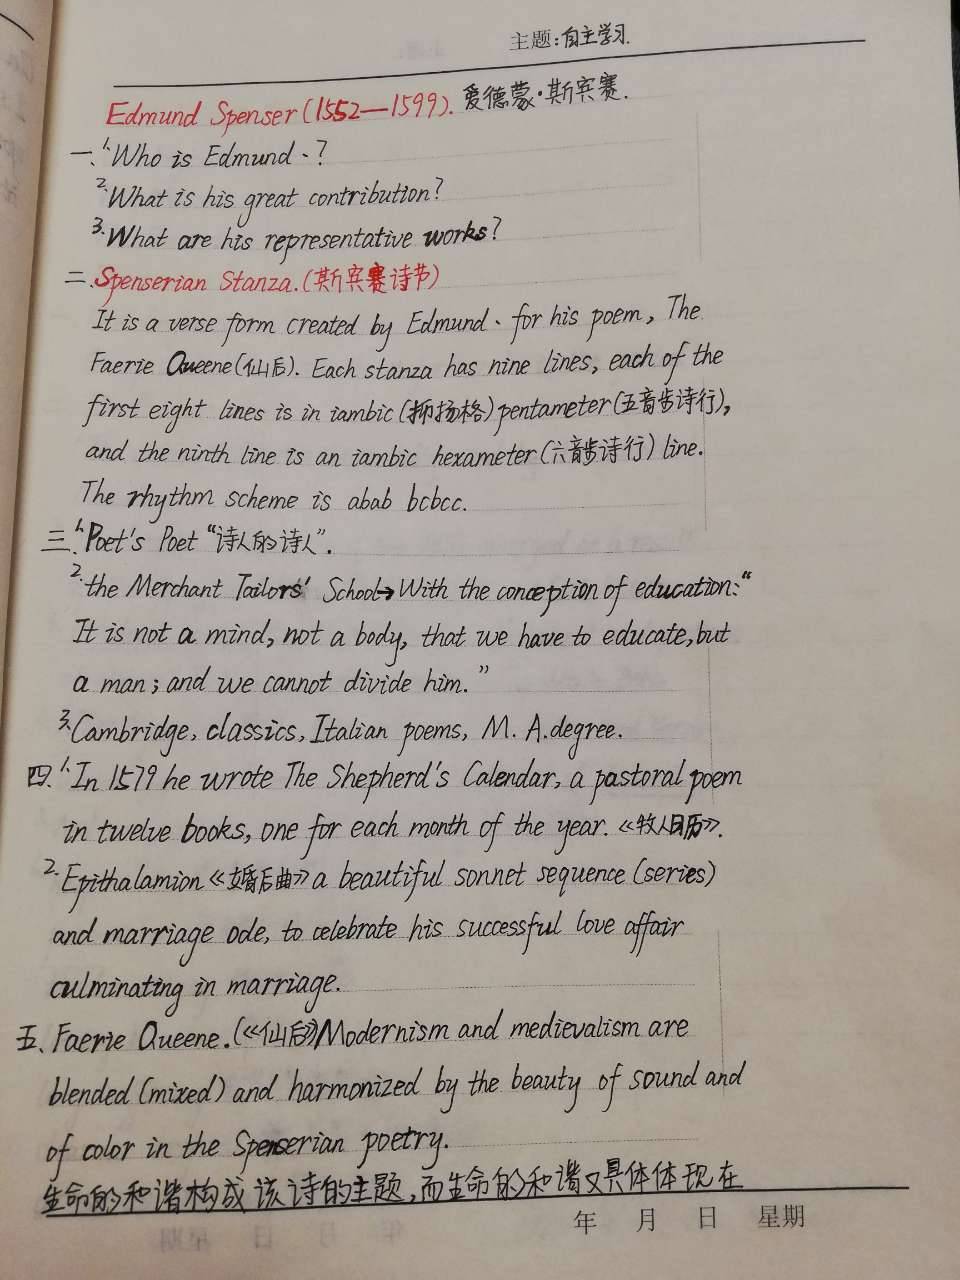 主题:自主学习.
Edmund Spenser(1552—1599). 爱德蒙·斯宾塞.
一、1.Who is Edmund、?
2.What is his great contribution?
3.What are his representative works?
二.Spenserian Stanza.(斯宾赛诗节)
It is a verse form created by Edmund、for his poem, The
Faerie Queene(仙后). Each stanza has nine lines, each of the
first eight lines is in iambic(抑扬格)pentameter(五音步诗行),
and the ninth line is an iambic hexameter(六音步诗行) line.
The rhythm scheme is abab bcbcc.
三、1.Poet's Poet “诗人的诗人”.
2.the Merchant Tailors' School→With the conception of education:“
It is not a mind, not a body, that we have to educate, but
a man; and we cannot divide him.”
3.Cambridge, classics, Italian poems, M. A.degree.
四.1.In 1579 he wrote The Shepherd's Calendar, a pastoral poem
in twelve books, one for each month of the year.《牧人日历》.
2.Epithalamion《婚后曲》a beautiful sonnet sequence (series)
and marriage ode, to celebrate his successful love affair
culminating in marriage.
五、Faerie Queene.(《仙后》)Modernism and medievalism are
blended (mixed) and harmonized by the beauty of sound and
of color in the Spenserian poetry.
生命的和谐构成该诗的主题,而生命的和谐又具体体现在
年 月 日 星期